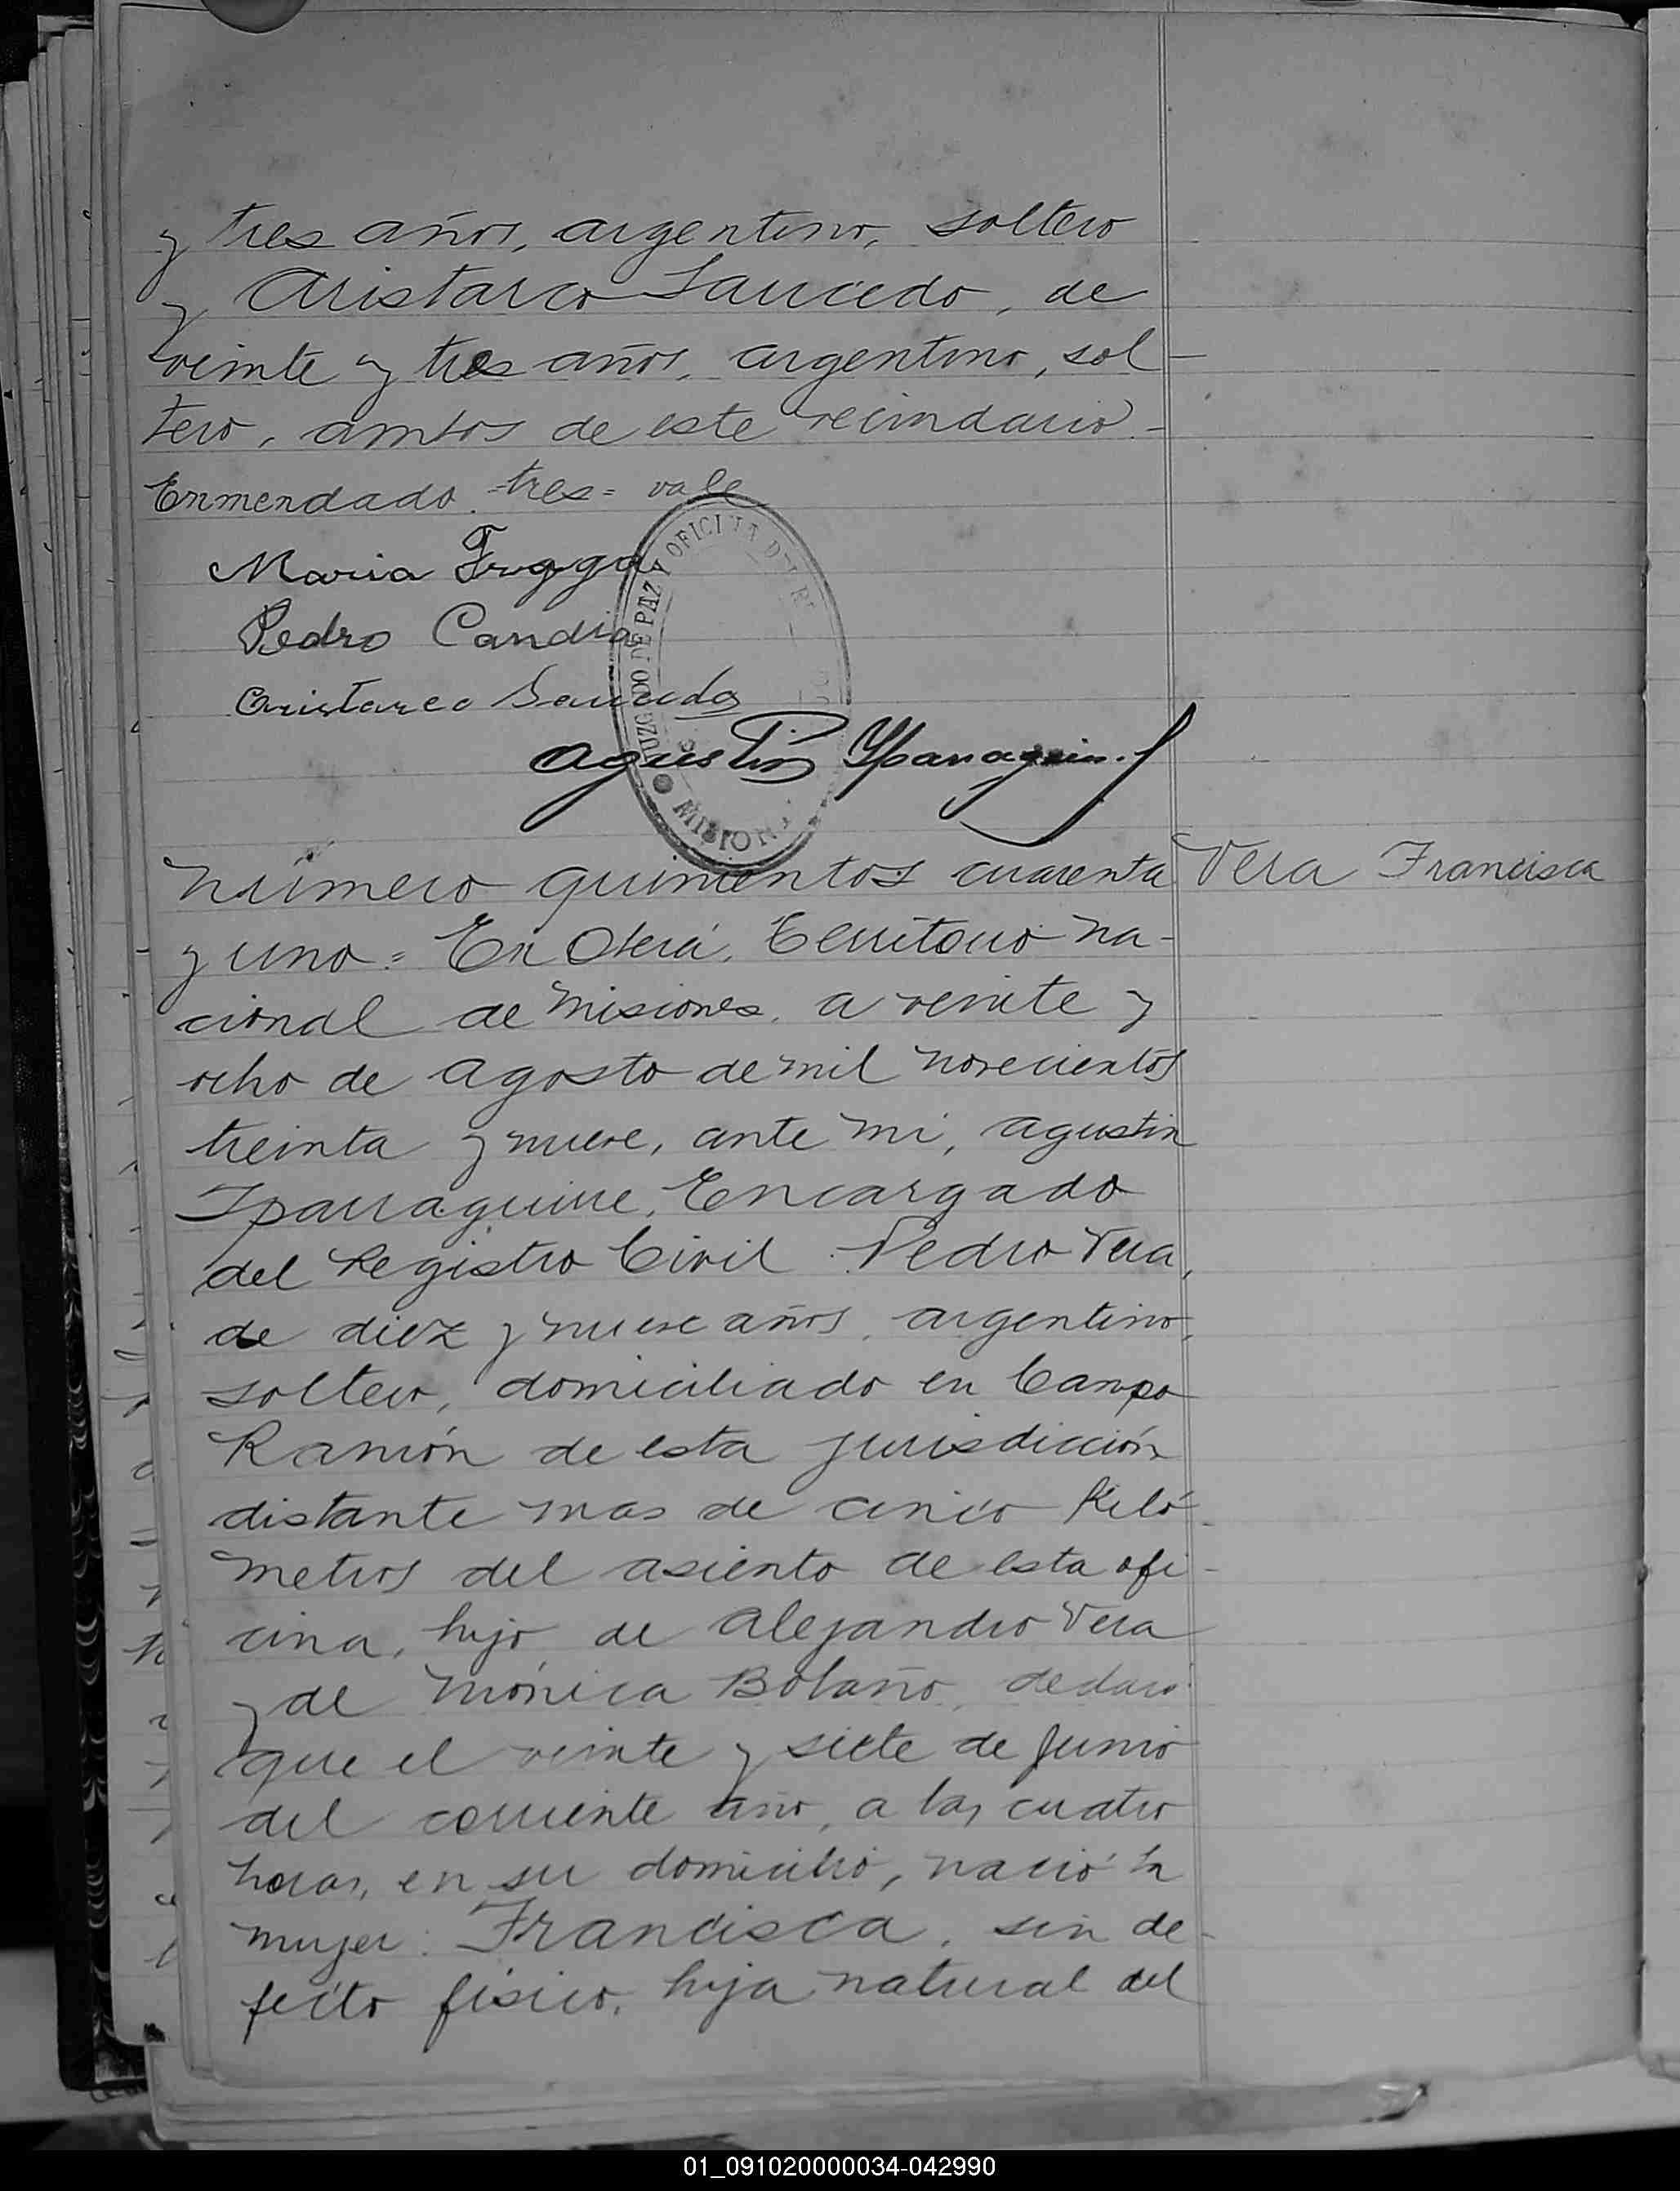 y tres años, argentino, soltero
y Aristarco Saucedo, de
veinte y tres años, argentino, sol-
tero, ambos de este vecindario.-
Enmendado =tres= vale
Maria
Pedro Candia
Aristarco Saucedo
JUZGADO DE PAZ Y OFICINA D
MISIONES
Agustin Yparraguirre
Número quinientos cuarenta
y uno = En Oberá, Territorio Na-
cional de Misiones, a veinte y
ocho de Agosto de mil novecientos
treinta y nueve, ante mi, Agustin
Iparraguirre, Encargado
del Registro Civil Pedro Vera,
de diez y nueve años, argentino,
soltero, domiciliado en Campo
Ramón de esta jurisdicción
distante mas de cinco Kiló-
metros del asiento de esta ofi-
cina, hijo de Alejandro Vera
y de Mónica Bolaño, declaró
que el veinte y siete de Junio
del corriente año, a las cuatro
horas, en su domicilio, nació la
mujer: Francisca, sin de-
fecto físico, hija natural del
Vera Francisca
01_091020000034-042990